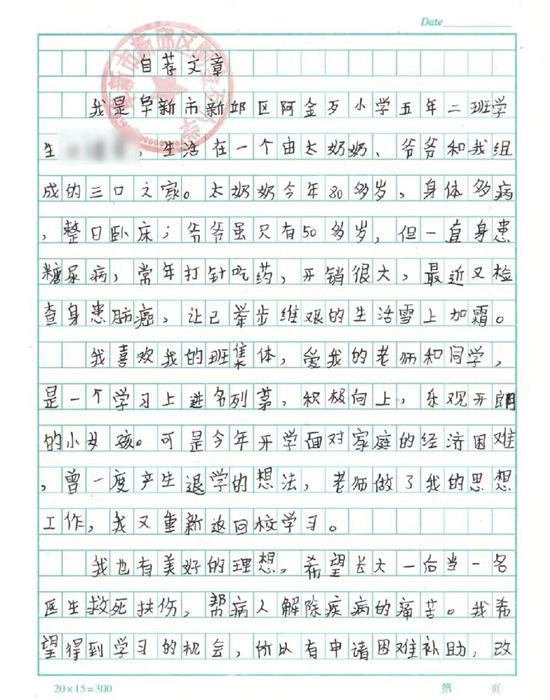 Date
自荐文章
我是阜新市新邱区阿金歹小学五年二班学
生，生活在一个由太奶奶、爷爷和我组
成的三口之家。太奶奶今年80多岁，身体多病
，整日卧床；爷爷虽只有50多岁，但一直身患
糖尿病，常年打针吃药，开销很大，最近又检
查身患肺癌，让己举步维艰的生活雪上加霜。
我喜欢我的班集体，爱我的老师和同学，
是一个学习上进名列第，积极向上，乐观开朗
的小女孩。可是今年开学面对家庭的经济困难
，曾一度产生退学的想法，老师做了我的思想
工作，我又重新返回校学习。
我也有美好的理想，希望长大一后当一名
医生救死扶伤，帮病人解除疾病的痛苦。我希
望得到学习的机会，所以有申请困难补助，改
20×15=300
第 页